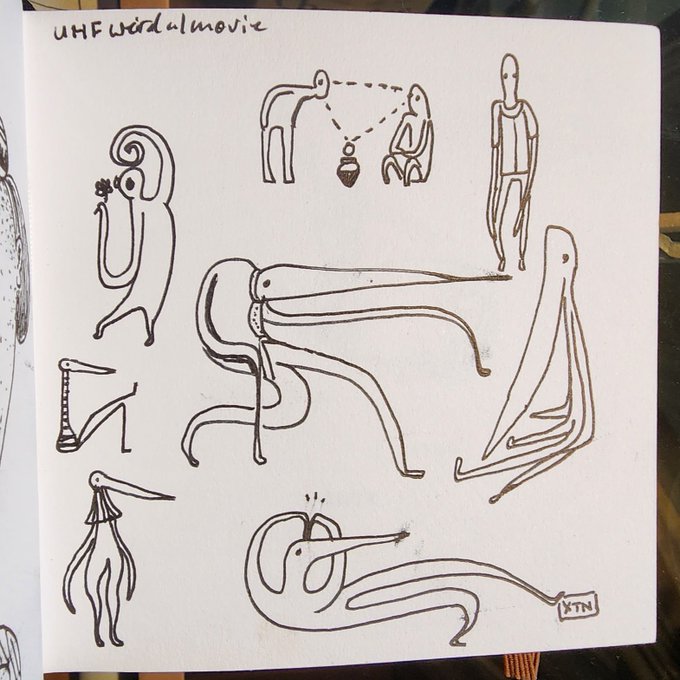 UHF weird al movie
XTN